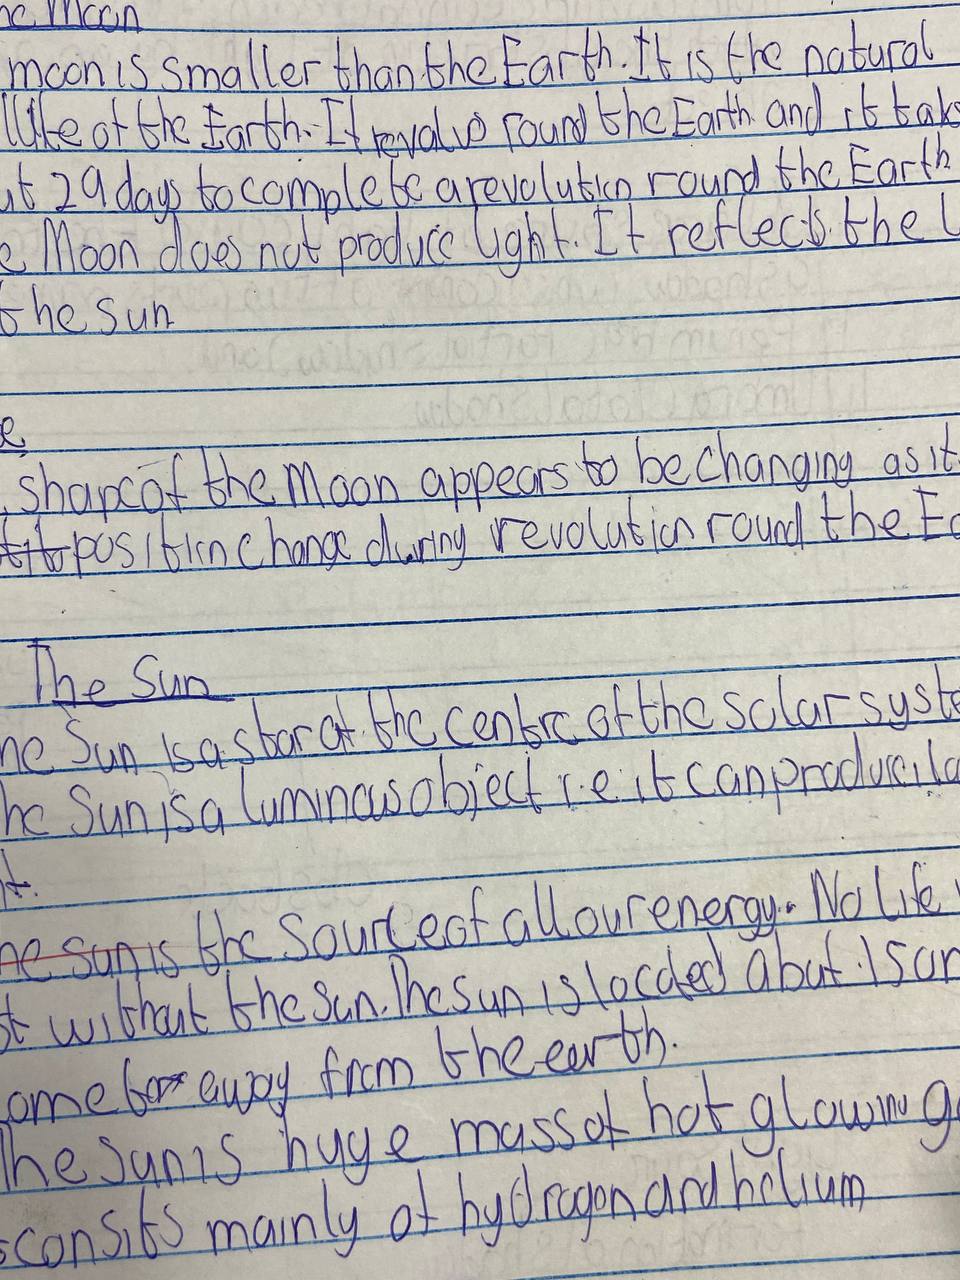 he Moon
moon is smaller than the Earth. It is the natural
llite of the Earth. It revolve round the Earth and it take
ut 29 days to complete a revolution round the Earth
e Moon does not produce light. It reflects the l
the sun
e
shape of the Moon appears to be changing as it
position change during revolution round the Ea
The Sun
he Sun is a star at the centre of the solar syste
he Sun is a luminous object i.e. it can produce
t.
he sun is the source of all our energy. No life
st without the sun. The sun is located about
ometer away from the earth.
The sun is huge mass of hot glowing g
consits mainly of hydragon and helium